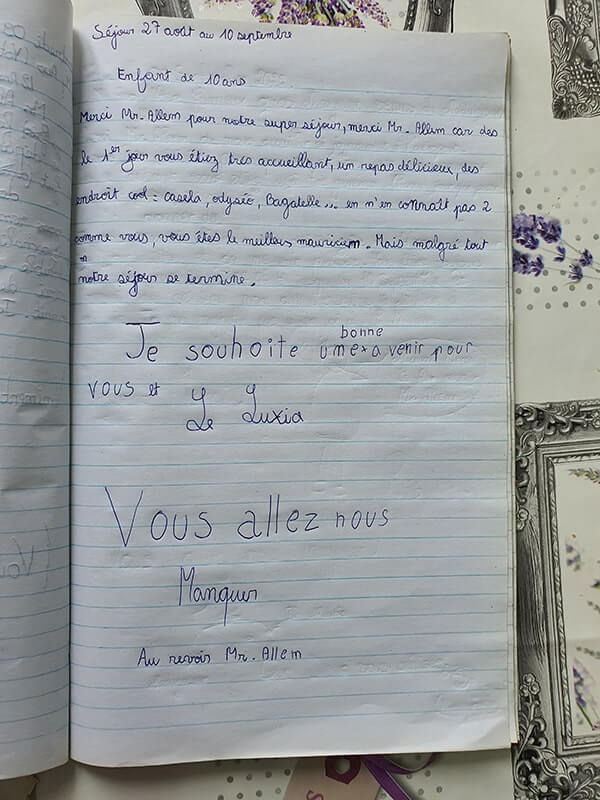 Séjour 27 août au 10 septembre
Enfant de 10 ans
Merci Mr. Allem pour notre super séjour, merci Mr. Allem car des
le 1er jour vous étiez tres accueillant, un repas délicieux, des
endroit cool : casela, odyséo, Bagatelle... en n'en connaît pas 2
comme vous, vous êtes le meilleur mauricien. Mais malgré tout
notre séjour se termine.
Je souhoite une bonne avenir pour
vous et Le Luxia
Vous allez nous
Manquer
Au revoir Mr. Allem